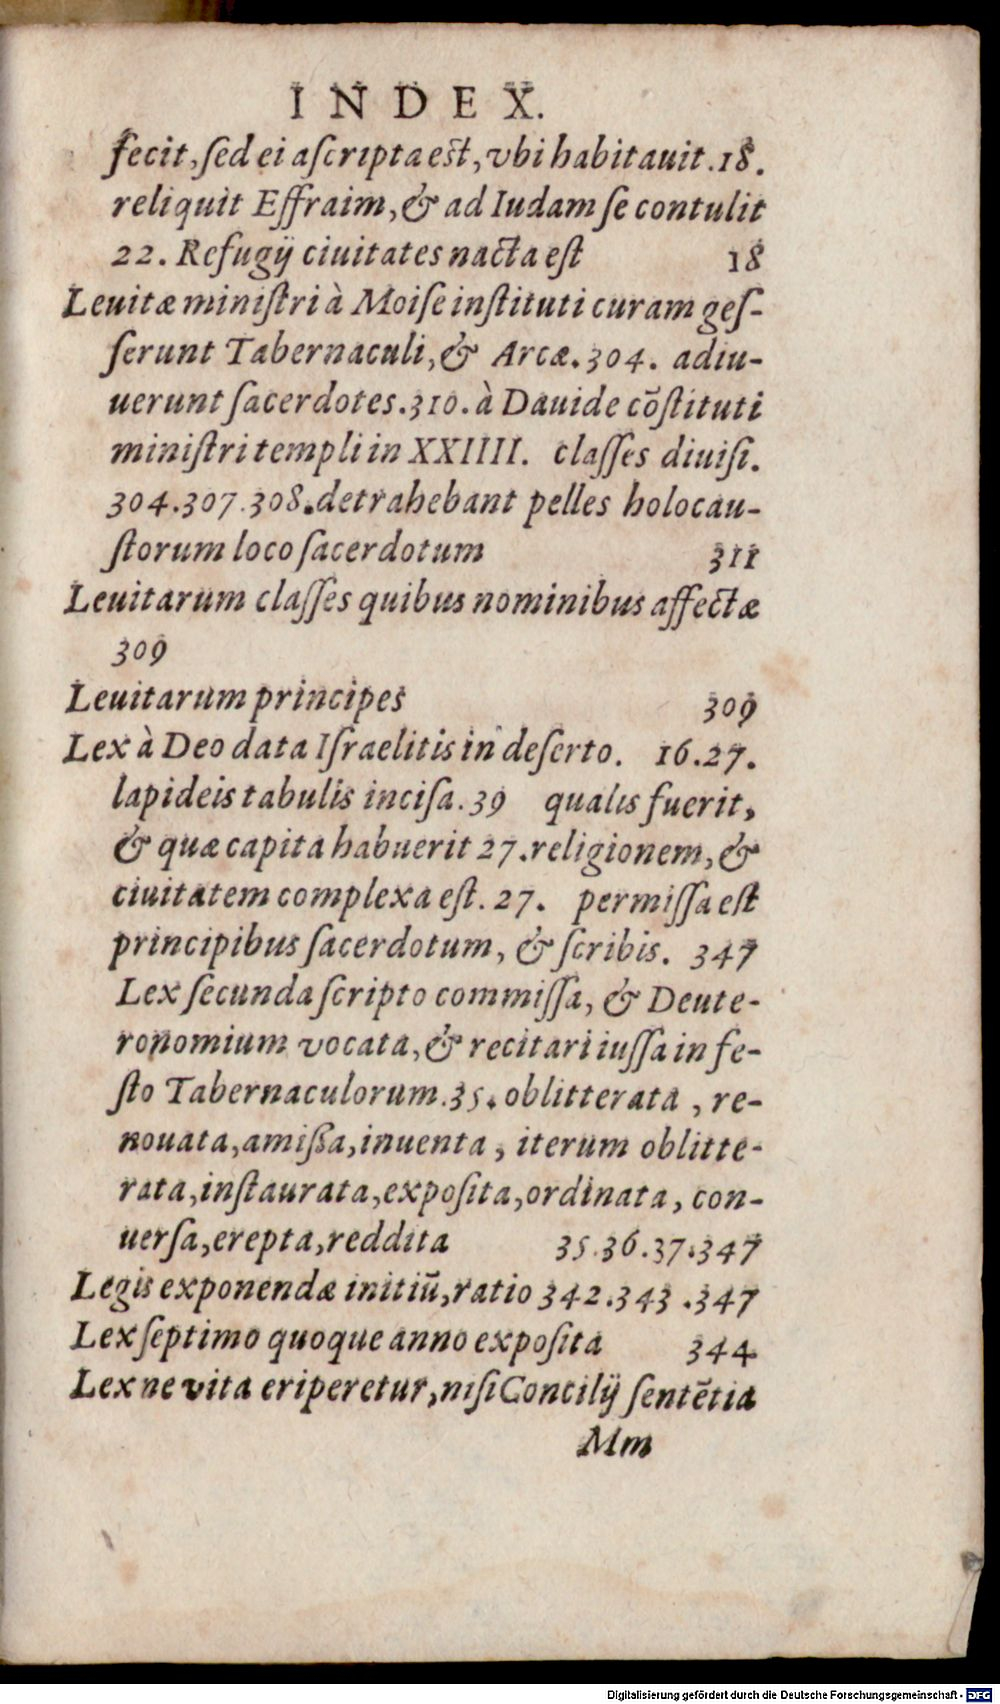 INDEX.
fecit, ſed ei aſcripta eſt, vbi habitauit. 18.
reliquit Effraim, & ad Iudam ſe contulit
22. Refugij ciuitates nacta eſt 18
Leuitæ miniſtri à Moiſe inſtituti curam geſ-
ſerunt Tabernaculi, & Arcæ. 304. adiu-
uerunt ſacerdotes. 310. à Dauide cōſtituti
miniſtri templi in XXIIII. claſſes diuiſi.
304. 307. 308. detrahebant pelles holocau-
ſtorum loco ſacerdotum 311
Leuitarum claſſes quibus nominibus affectæ
309
Leuitarum principes 309
Lex à Deo data Iſraelitis in deſerto. 16. 27.
lapideis tabulis inciſa. 39 qualis fuerit,
& quæ capita habuerit 27. religionem, &
ciuitatem complexa eſt. 27. permiſſa eſt
principibus ſacerdotum, & ſcribis. 347
Lex ſecunda ſcripto commiſſa, & Deute-
ronomium vocata, & recitari iuſſa in fe-
ſto Tabernaculorum. 35. oblitterata, re-
nouata, amiſſa, inuenta, iterum oblitte-
rata, inſtaurata, expoſita, ordinata, con-
uerſa, erepta, reddita 35. 36. 37. 347
Legis exponendæ initiū, ratio 342. 343. 347
Lex ſeptimo quoque anno expoſita 344
Lex ne vita eriperetur, niſi Concilij ſentētia
Mm
Digitalisierung gefördert durch die Deutsche Forschungsgemeinschaft - DFG